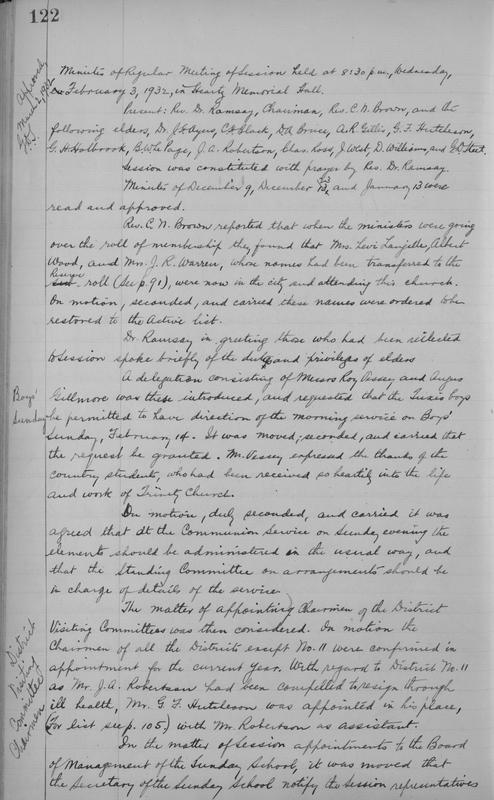 122
Approved
March 2, 1932
Minutes of Regular Meeting of Session held at 8:30 p.m., Wednesday,
February 3, 1932, in Heartz Memorial Hall.
Present: Rev. Dr. Ramsay, Chairman, Rev. C. N. Brown, and the
following elders, Dr. J. D. Ayers, C. H. Black, D. A. Bruce, A. R. Gillis, G. F. Hutcheson,
G. H. Holbrook, B. W. Le Page, J. A. Robertson, Chas. Ross, J. West, D. Williams, and
Session was constituted with prayer by Rev. Dr. Ramsay.
Minutes of December 9, December 23, and January 13 were
read and approved.
Rev. C. N. Brown reported that when the ministers were going
over the roll of membership they found that Mrs. Levi Albert
Wood, and Mrs. J. R. Warren, whose names had been transferred to the
Reserve
roll (see p. 91), were now in the city and attending this church.
On motion, seconded, and carried these names were ordered to be
restored to the Active list.
Dr. Ramsay in greeting those who had been reelected
to Session spoke briefly of the duty and privileges of elders
A delegation consisting of Messrs Roy Vessey and Angus
Boys'
Sunday
Gillmore was then introduced, and requested that the Tuxis boys
be permitted to have direction of the morning service on Boys'
Sunday, February 14. It was moved, seconded, and carried that
the request be granted. Mr. Vessey expressed the thanks of the
country students, who had been received so heartily into the life
and work of Trinity Church.
On motion, duly seconded, and carried it was
agreed that at the Communion Service on Sunday evening the
elements should be administered in the usual way, and
that the Standing Committee on arrangements should be
in charge of details of the service.
The matter of appointing Chairmen of the District
Visiting Committees was then considered. On motion the
District
Visiting
Committee
Chairmen
Chairmen of all the Districts except No. 11 were confirmed in
appointment for the current year. With regard to District No. 11
as Mr. J. A. Robertson had been compelled to resign through
ill health, Mr. G. F. Hutcheson was appointed in his place,
(For list see p. 105.) with Mr. Robertson as assistant.
In the matter of Session appointments to the Board
of Management of the Sunday School, it was moved that
the Secretary of the Sunday School notify the Session representatives